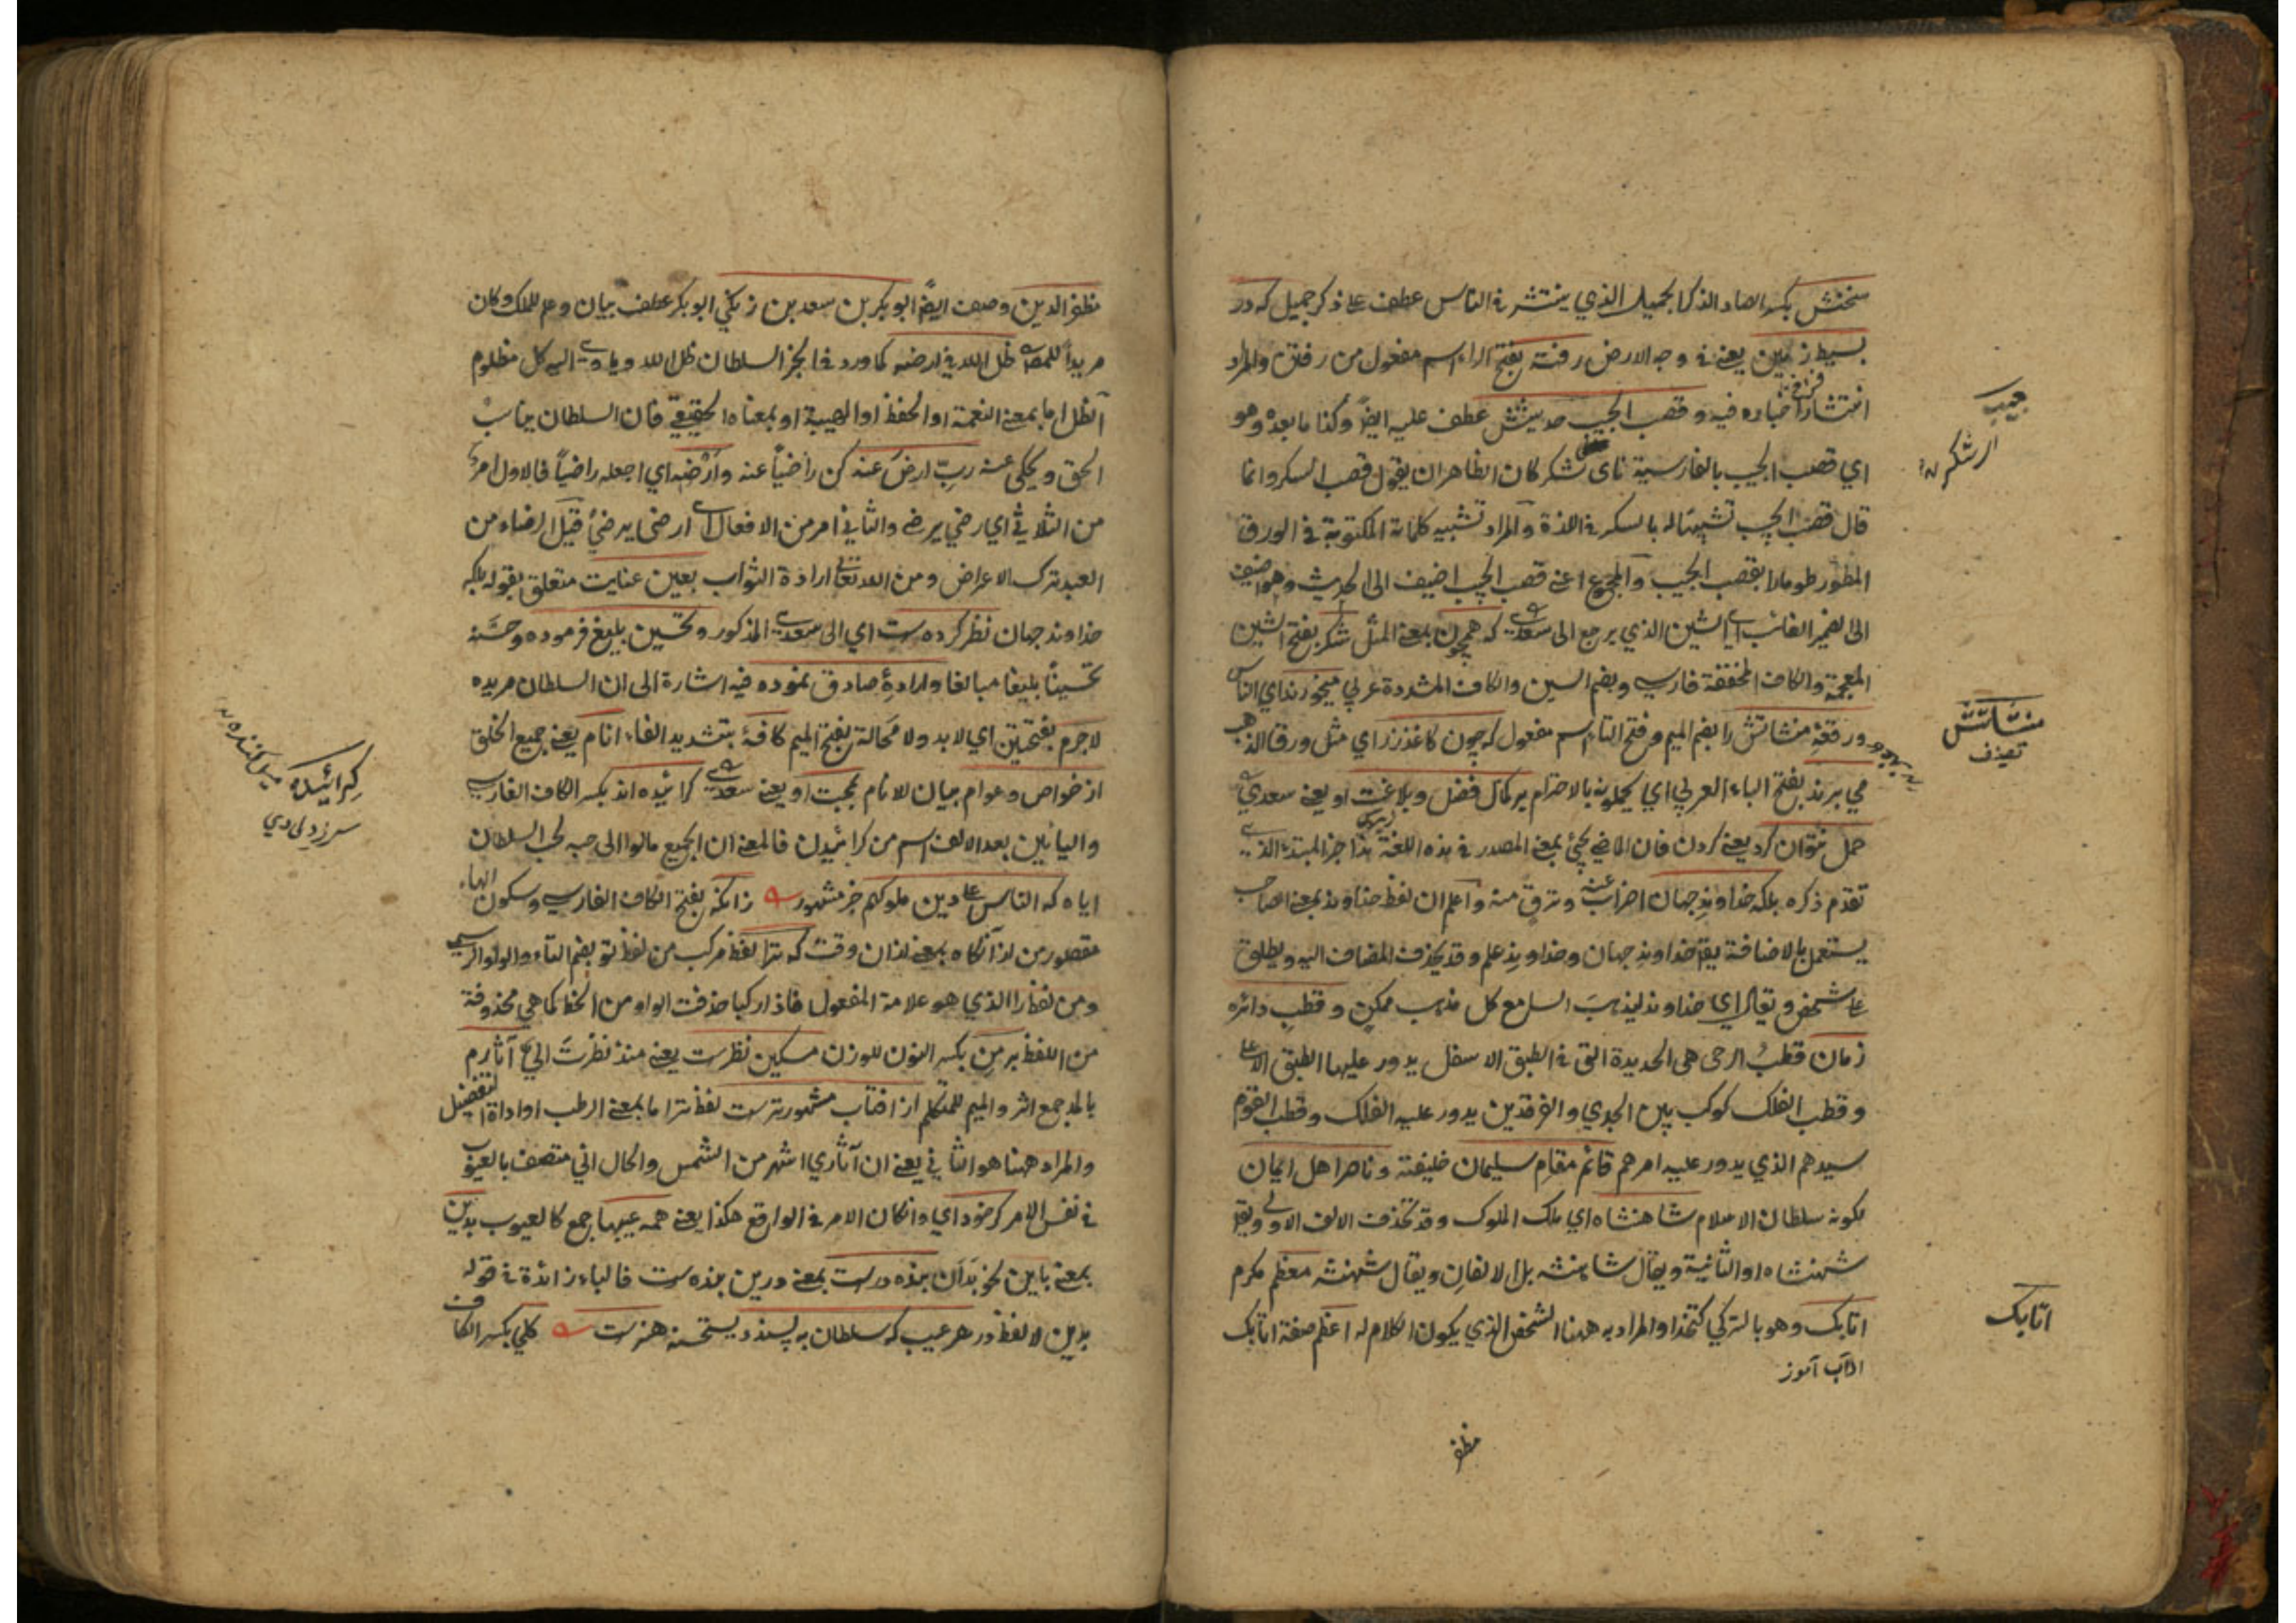 سخنش بكسر الصاد الذكر الجميل الذي ينتشر في الناس عطف على ذكر جميل كه در
بسيط زمين يعني في وجه الارض رفته بفتح الراء اسم مفعول من رفتن والمراد
انتشار اخباره فيه وقصب الجيب حديثش عطف عليه ايضا وكذا ما بعده وهو
اي قصب الجيب بالفارسية ناى شكر كان الظاهر ان يقول قصب السكر وانما
قال قصب الجيب تشبيها له بالسكر في اللذة والمراد تشبيه كلماته المكتوبة في الورق
المطور طومارا بقصب الجيب والمجموع اعني قصب الجيب اضيف الى الحديث وهو اضيف
الى الضمير الغائب اي الشين الذي يرجع الى سعدى كه همچون بمعنى المثل شكر بفتح الشين
المعجمة والكاف المخففة فارسي وبضم السين والكاف المشددة عربي ميخورند اي الناس
ورقعة منشاتش را بضم الميم وفتح التاء اسم مفعول كه چون كاغذ زر اي مثل ورق الذهب
مي برند بفتح الباء العربي اي يحملونه بالاحترام بر كمال فضل وبلاغت او يعني سعدي
حمل نتوان كرد يعني كردن فان الماضي يجئ بمعنى المصدر في هذه اللغة هذا خبر المبتداء الذي
تقدم ذكره بلكه خداوند جهان اضراب عنه وترق منه واعلم ان لفظ خداوند بمعنى الصاحب
يستعمل بالاضافة يقال خداوند جهان وخداوند علم وقد يحذف المضاف اليه ويطلق
على شخص ويقال اي خداوند ليذهب السامع كل مذهب ممكن وقطب دائره
زمان قطب الرحى هي الحديدة التي في الطبق الاسفل يدور عليها الطبق الاعلى
وقطب الفلك كوكب بين الجدي والفرقدين يدور عليه الفلك وقطب القوم
سيدهم الذي يدور عليه امرهم قائم مقام سليمان خليفته وناصر اهل ايمان
لكونه سلطان الاسلام شاهنشاه اي ملك الملوك وقد تحذف الالف الاولى ويقال
شهنشاه او الثانية ويقال شاهنشه بل الالفان ويقال شهنشه معظم مكرم
اتابك وهو بالتركي كتخذا والمراد به ههنا الشخص الذي يكون الكلام له اعظم صفة اتابك
اداب آموز
مظفر
جيب
ارشكر
منشاتش
اتابك
مظفر الدين وصف ايضا ابو بكر بن سعد بن زنكي ابو بكر عطف بيان وعلم للملك وكان
مريدا للمص ظل الله في ارضه كما ورد في الخبر السلطان ظل الله وياوى اليه كل مظلوم
الظل اما بمعنى النعمة او الحفظ او الهيبة او بمعناه الحقيقي فان السلطان يناسب
الحق ويحكى عنه رب ارض عنه كن راضيا عنه وارضه اي اجعله راضيا فالاول امر
من الثلاثي اي رضي يرضى والثاني امر من الافعال اي ارضى يرضي قيل الرضاء من
العبد ترك الاعراض ومن الله تعالى ارادة الثواب بعين عنايت متعلق بقوله بلكه
خداوند جهان نظر كرده ست اي الى سعدي المذكور وتحسين بليغ فرموده وحسنه
تحسينا بليغا مبالغا وارادة صادق نموده فيه اشارة الى ان السلطان مريده
لاجرم بفتحتين اي لابد ولا محالة بفتح الميم كافة بتشديد الفاء انام يعني جميع الخلق
از خواص وعوام بيان للانام بمحبت او يعني سعدي كرائيده اند بكسر الكاف الفارسي
واليائين بعد الالف اسم من كرائيدن فالمعنى ان الجميع مالوا الى حبه لحب السلطان
اياه كه الناس على دين ملوكهم خبر مشهور زانكه بفتح الكاف الفارسي وسكون الهاء
مقصور من از آنكاه بمعنى از ان وقت كه ترا لفظ مركب من لفظ تو بضم التاء والواو الرسمي
ومن لفظ را الذي هو علامة المفعول فاذا ركبا حذفت الواو من الخط كما هي محذوفة
من اللفظ بر من بكسر النون للوزن مسكين نظرست يعني منذ نظرت الي آثارم
بالمد جمع اثر والميم للمتكلم از افتاب مشهورترست لفظ تر اما بمعنى الرطب او اداة التفضيل
والمراد ههنا هو الثاني يعني ان آثاري اشهر من الشمس والحال اني متصف بالعيوب
في نفس الامر كر خود اي وان كان الامر في الواقع هكذا يعني همه عيبها جمع كالعيوب بدين
بمعنى باين نحو بدان بنده درست بمعنى درين بنده ست فالباء زائدة في قوله
بدين لا لفظ در هر عيب كه سلطان به پسندد يستحسنه هنرست كلي بكسر الكاف
كرائيده